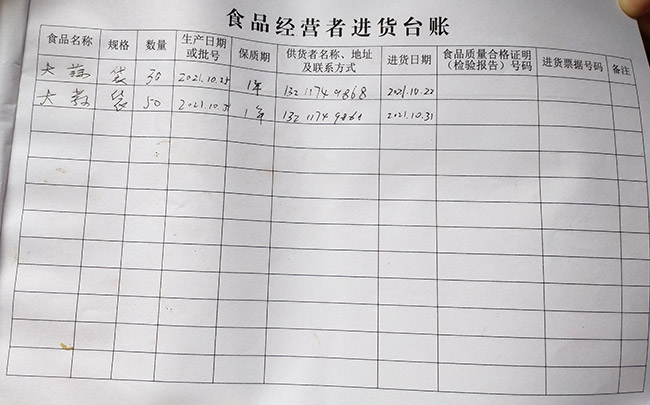 食品经营者进货台账
食品名称 规格 数量 生产日期或批号 保质期 供货者名称、地址及联系方式 进货日期 食品质量合格证明（检验报告）号码 进货票据号码 备注
大蒜 袋 30 2021.10.25 1年 132 1174 9868 2021.10.22
大蒜 袋 50 2021.10.31 1年 132 1174 9868 2021.10.31